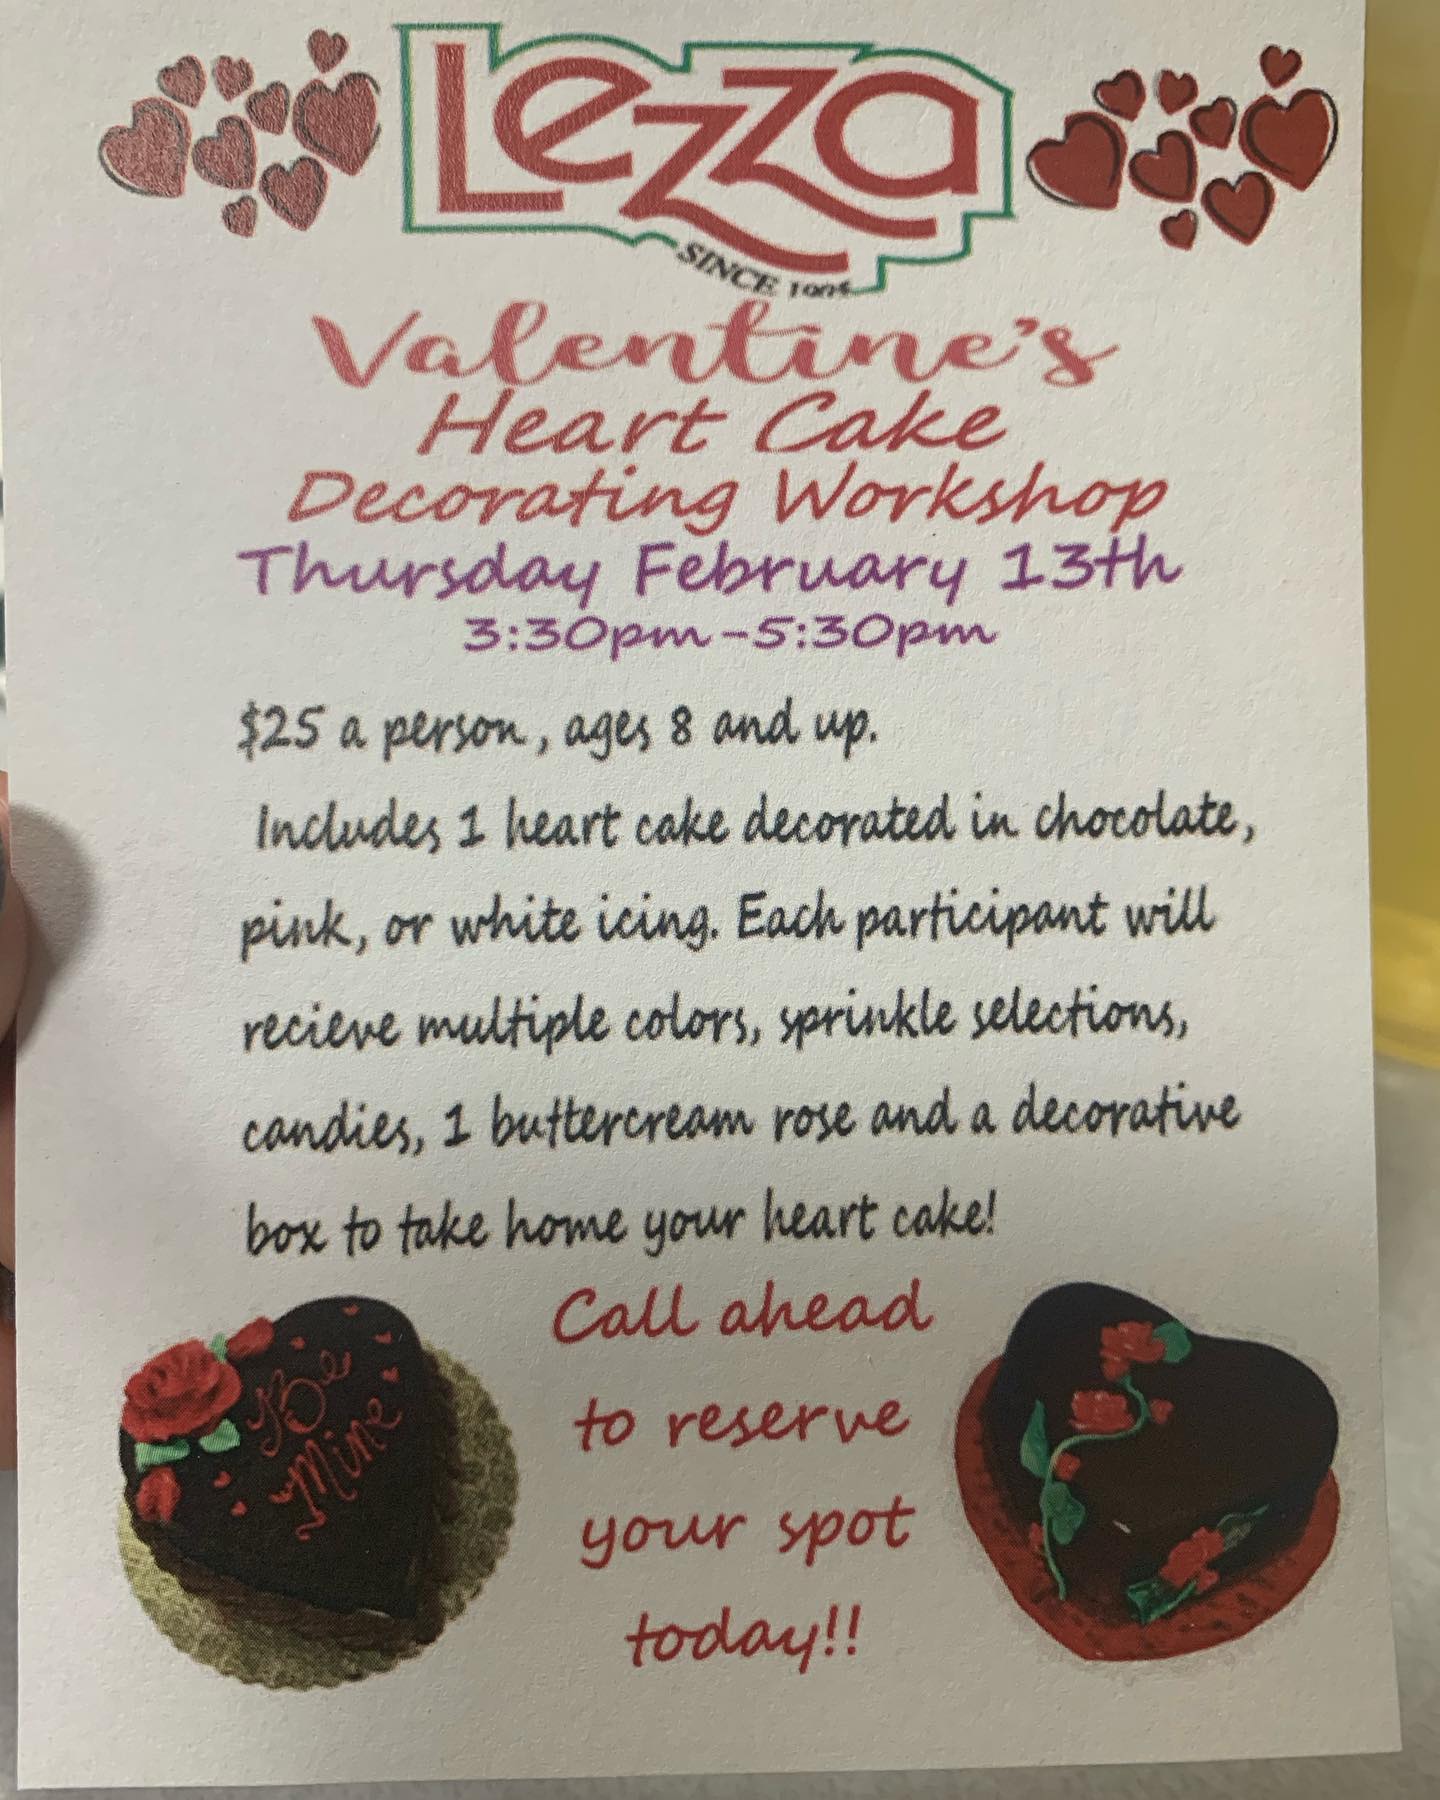 Lezza
SINCE 1905
Valentine's
Heart Cake
Decorating Workshop
Thursday February 13th
3:30pm-5:30pm
$25 a person, ages 8 and up.
Includes 1 heart cake decorated in chocolate,
pink, or white icing. Each participant will
recieve multiple colors, sprinkle selections,
candies, 1 buttercream rose and a decorative
box to take home your heart cake!
Call ahead
to reserve
your spot
today!!
Be
Mine